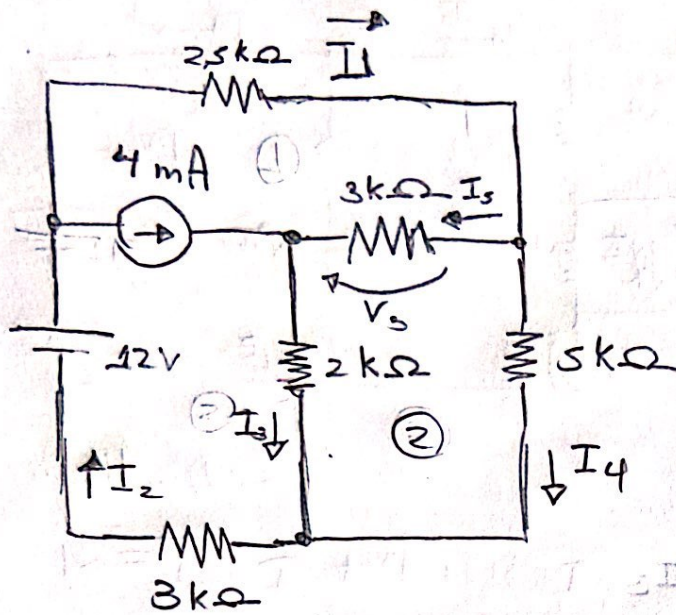 2,5kΩ
I1
4 mA
1
3kΩ I5
V5
12V
2kΩ
5kΩ
2
I3
2
I2
I4
3kΩ